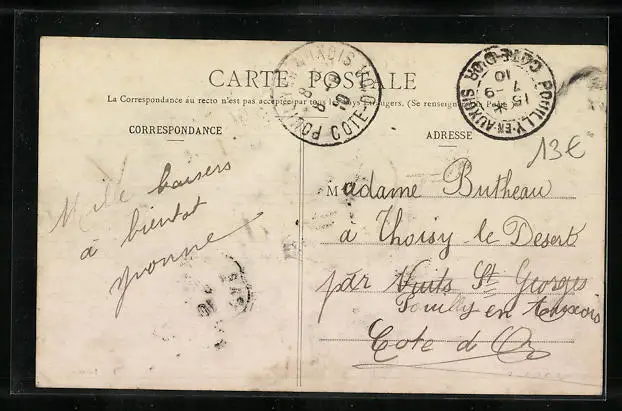 CARTE POSTALE
La Correspondance au recto n'est pas acceptée par tous les pays étrangers. (Se renseigner à la Poste)
CORRESPONDANCE
ADRESSE
POUILLY-EN-AUXOIS
COTE-D'OR
15
7-9
10
13€
Mille baisers
à bientot
Yvonne
Madame Butheau
à Thoisy-le Desert
par Nuits St Georges
Pouilly en Auxois
Cote d Or